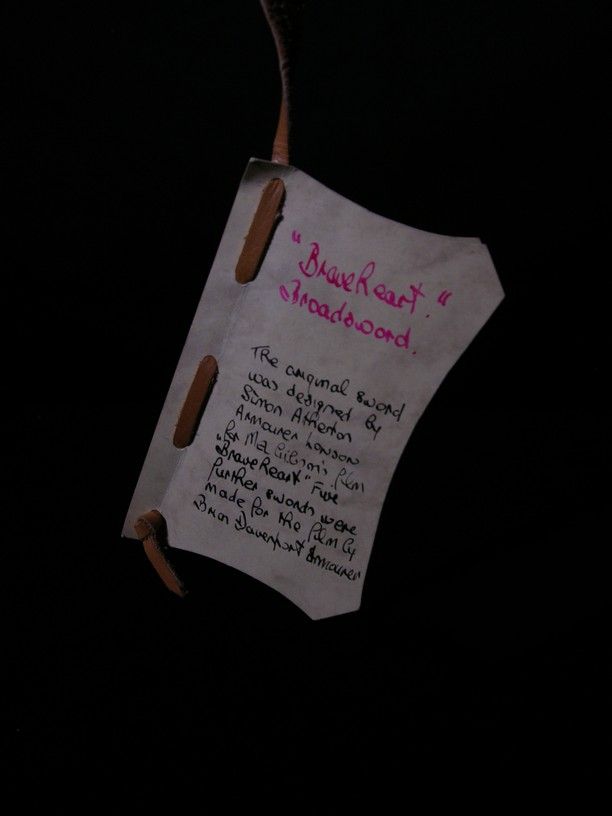 "BraveHeart."
Broadsword.
The original sword
was designed by
Simon Atherton
Armourer London
for Mel Gibson's film
"BraveHeart" Five
further swords were
made for the film by
Brian Davenport Armourer